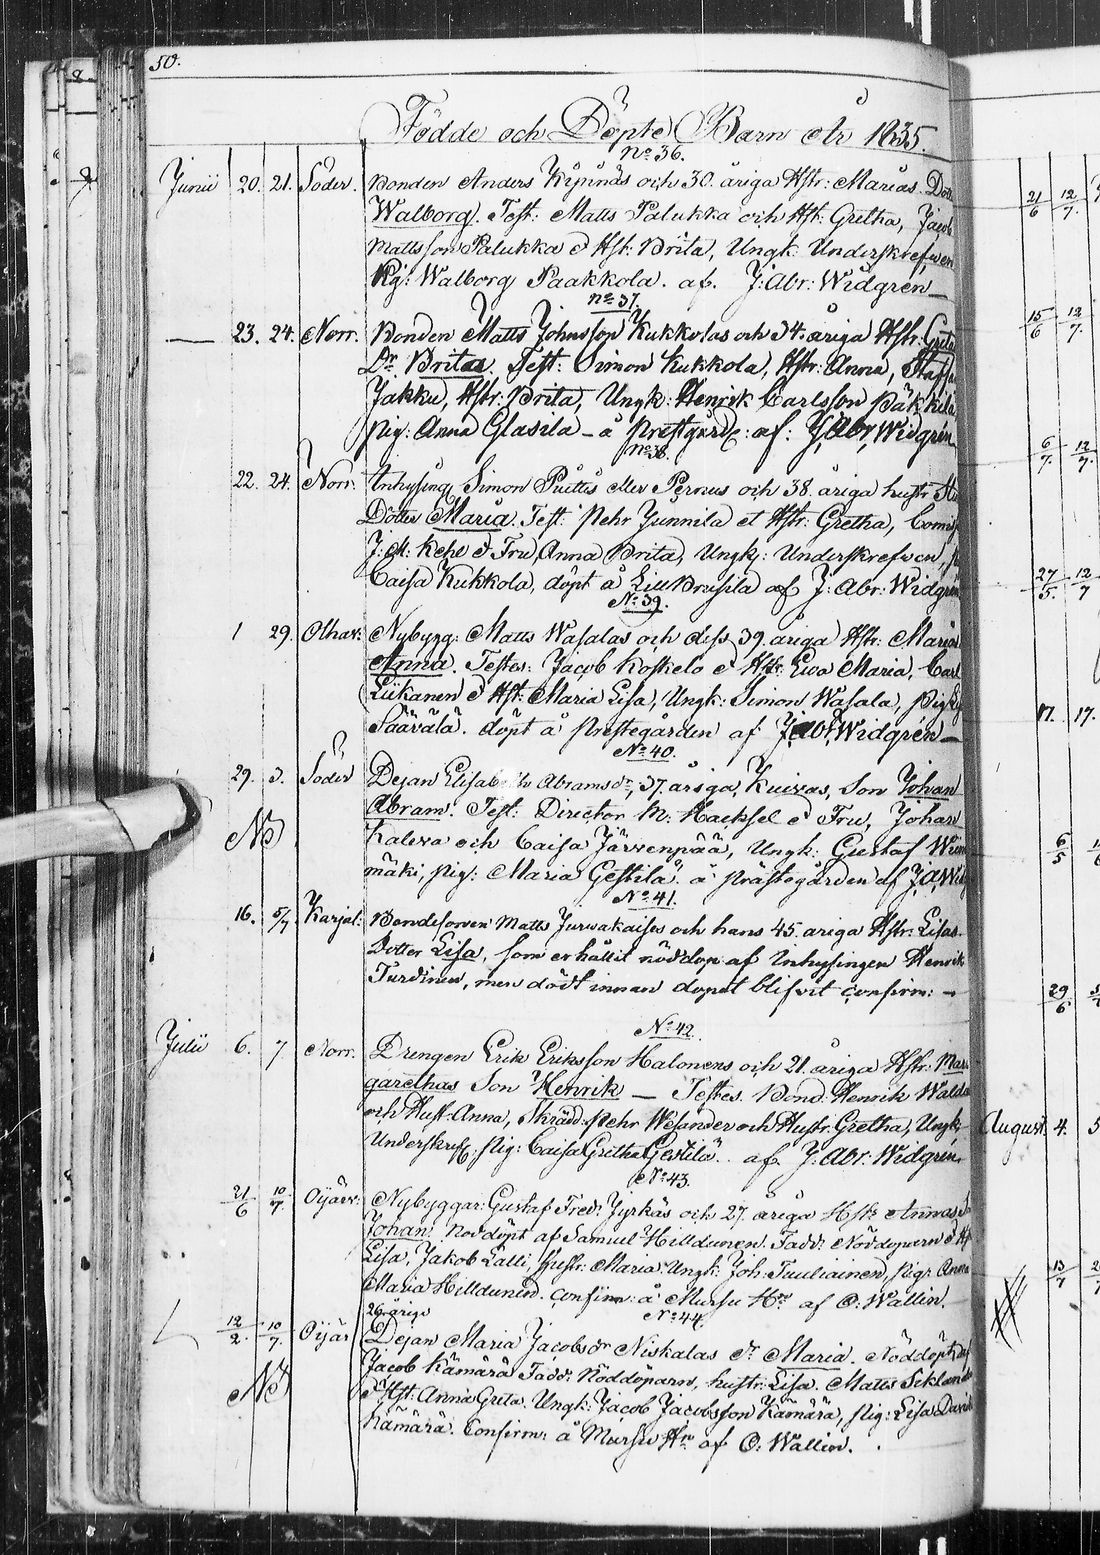 50.
Födde och Döpte Barn År 1835.
No 36.
Junii 20. 21. Söder. Bonden Anders Kipinäs och 30. åriga Hstr: Marias Dott
Walborg. Test: Matts Palukka och Hst: Gretha, Jacob
Mattsson Palukka & Hst: Brita, Ungk: Underskrefwen
Pg: Walborg Paakkola. af. J: Abr: Widgren
No 37.
23. 24. Norr. Bonden Matts Johnsson Kukkolas och 34. åriga Hstr: Greta
Dr. Brita. Test: Simon Kukkola, Hstr: Anna, Staffa
Jakku, Hstr: Brita, Ungk: Henrik Carlsson Päkkilä
pig: Anna Glasila - å prestgård: af: J, Abr, Widgrén
No 38.
22. 24. Norr. Inhysing Simon Puttus eller Pernus och 38. åriga hustr
Dotter Maria. Test: Pehr Junnila et Hstr: Gretha, Comis
J: M: Kehl & Fru, Anna Brita, Ungk: Underskrefven,
Caisa Kukkola, döpt å af J: Abr: Widgrén
No 39.
1 29. Olhav: Nybygg: Matts Wasalas och dess 39. åriga Hstr: Marias
Anna. Testes: Jacob Koskelo & Hstr: Ewa Maria, Carl
Liikanen & Hst: Maria Lisa, Ungk: Simon Wasala, Pig
Säävälä. döpt å Prestegården af J, Abr, Widgrén
No 40.
29. 3. Söder Dejan Elisabeth Abramsdr, 37. åriga, Kuivas, Son Johan
Abram. Test: Director M: Hacksel & Fru, Johan
NB Kaleva och Caisa Järvenpää, Ungk: Gustaf
mäki, pig: Maria Gestilä. å prästegården af J, A, Widg
No 41.
16. 5/7 Karjal: Bondesonen Matts Jurvakaises och hans 45. åriga Hstr: Lisas
Dotter Lisa, som erhållit nöddop af Inhysingen Henrik
Turdinen, men dödt innan dopet blifvit confirm:
No 42.
Julii 6. 7. Norr. Drengen Erik Eriksson Halonens och 21. åriga Hstr: Mar
garethas Son Henrik — Testes. Bond. Henrik
och Hust: Anna, Skrädd: Pehr Wesander och Hustr: Gretha, Ungk:
Underskref: pig: Caisa Gretha Gestilä. af J: Abr: Widgrén.
No 43.
21/6 10/7 Oijärv: Nybyggar: Gustaf Fredr: Jyrkäs och 27. åriga Hstr Annas S
Johan. Nöddöpt af Samuel Hilldunen. Fadd: Nöddoparn & Hst
Lisa, Jakob Lalli, Hustr: Maria. Ungk: Joh: Tuuliainen, Pig: Anna
Maria Hilldunen. Confirm: å Mursu Hn af O: Wallin.
No 44.
26. åriga
12/2. 10/7. Oijär Dejan Maria Jacobsdr Niskalas dr Maria. Nöddöpt af
Jacob Kämärä Fadd: Nöddöparn, hustr: Lisa. Matts
NB & Hst: Anna Greta. Ungk: Jacob Jacobsson Kämärä, Pig: Lisa David
Kämärä. Confirm: å Mursu Hn af O: Wallin.
21/6 12/7.
15/6 12/7.
6/7. 12/7.
27/5. 12/7
17. 17.
6/5
29/6
August 4. 5
13/7